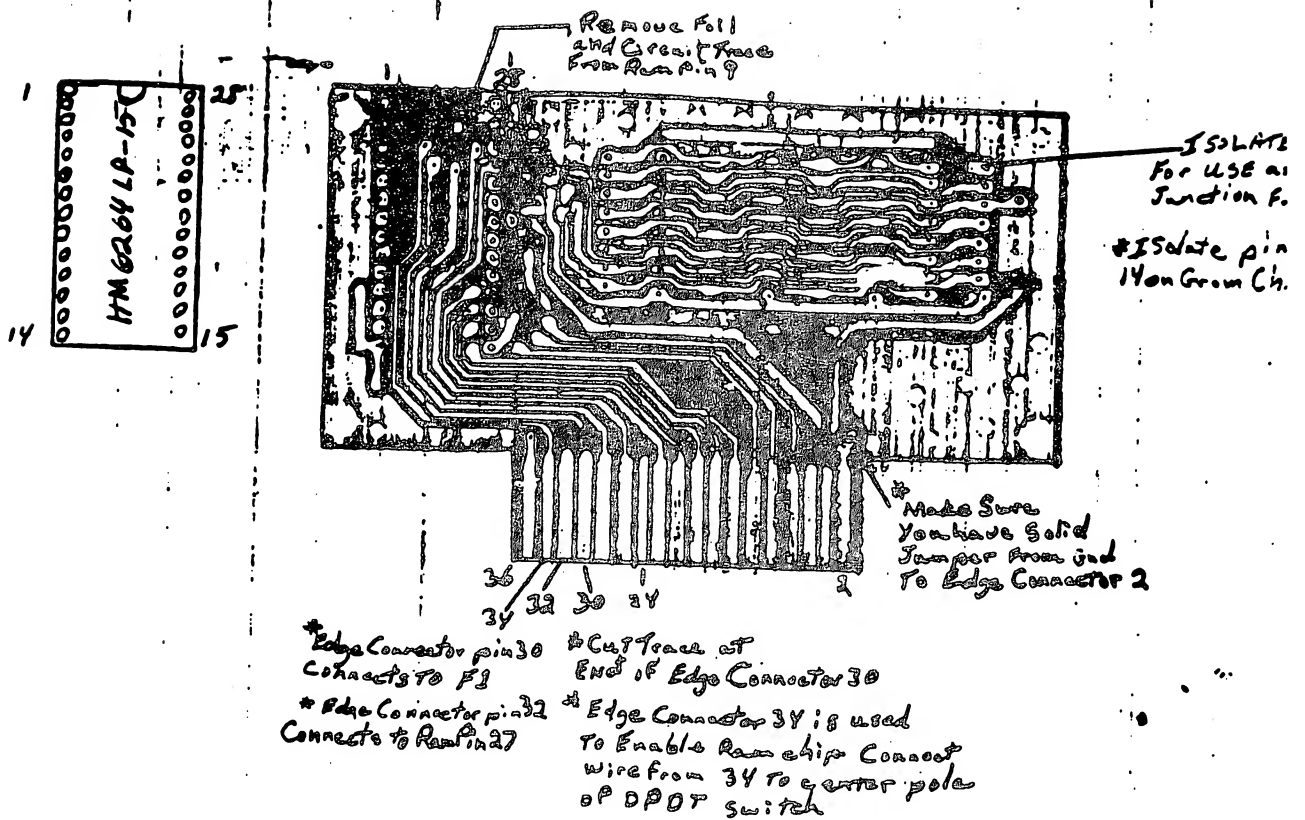 Remove Foil
and Circuit Trace
From Ram Pin 9
28
1
28
HM6264LP-15
14
15
ISOLATE
For USE as
Junction F.
*ISolate pin
14 on Grom Ch.
*
Make Sure
You have Solid
Jumper From gnd
To Edge Connector 2
36
34
32
30
24
2
*Edge Connector pin 30
Connects To F1
*Edge Connector pin 32
Connects to Ram Pin 27
*Cut Trace at
End of Edge Connector 30
*Edge Connector 34 is used
To Enable Ram chip Connect
wire from 34 To center pole
of DPDT switch